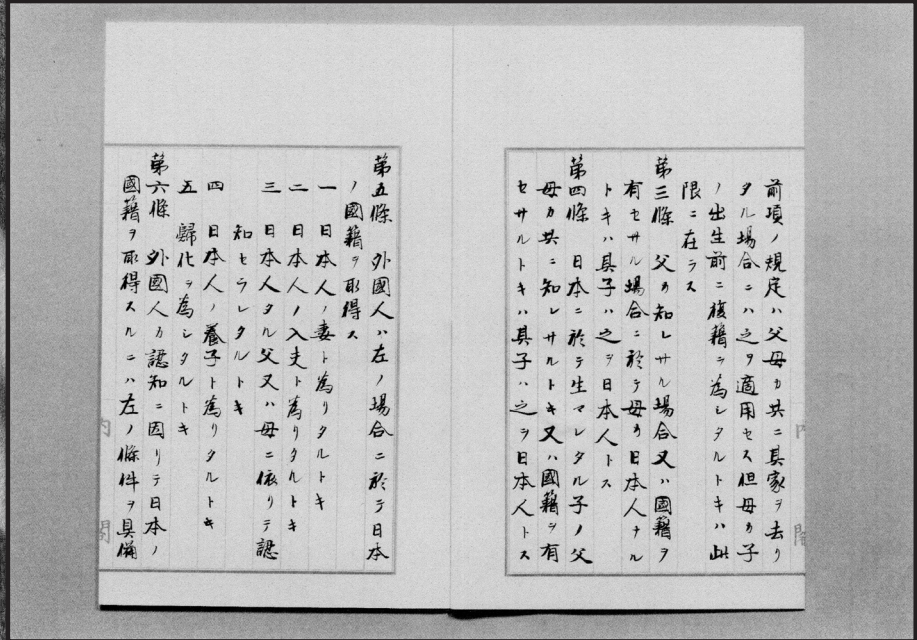 前項ノ規定ハ父母カ共ニ其家ヲ去リ
タル場合ニハ之ヲ適用セス但母カ子
ノ出生前ニ復籍ヲ為シタルトキハ此
限ニ在ラス
第三條　父カ知レサル場合又ハ國籍ヲ
有セサル場合ニ於テ母カ日本人ナル
トキハ其子ハ之ヲ日本人トス
第四條　日本ニ於テ生マレタル子ノ父
母カ共ニ知レサルトキ又ハ國籍ヲ有
セサルトキハ其子ハ之ヲ日本人トス
第五條　外國人ハ左ノ場合ニ於テ日本
ノ國籍ヲ取得ス
一　日本人ノ妻ト為リタルトキ
二　日本人ノ入夫ト為リタルトキ
三　日本人タル父又ハ母ニ依リテ認
知セラレタルトキ
四　日本人ノ養子ト為リタルトキ
五　歸化ヲ為シタルトキ
第六條　外國人カ認知ニ因リテ日本ノ
國籍ヲ取得スルニハ左ノ條件ヲ具備
内閣